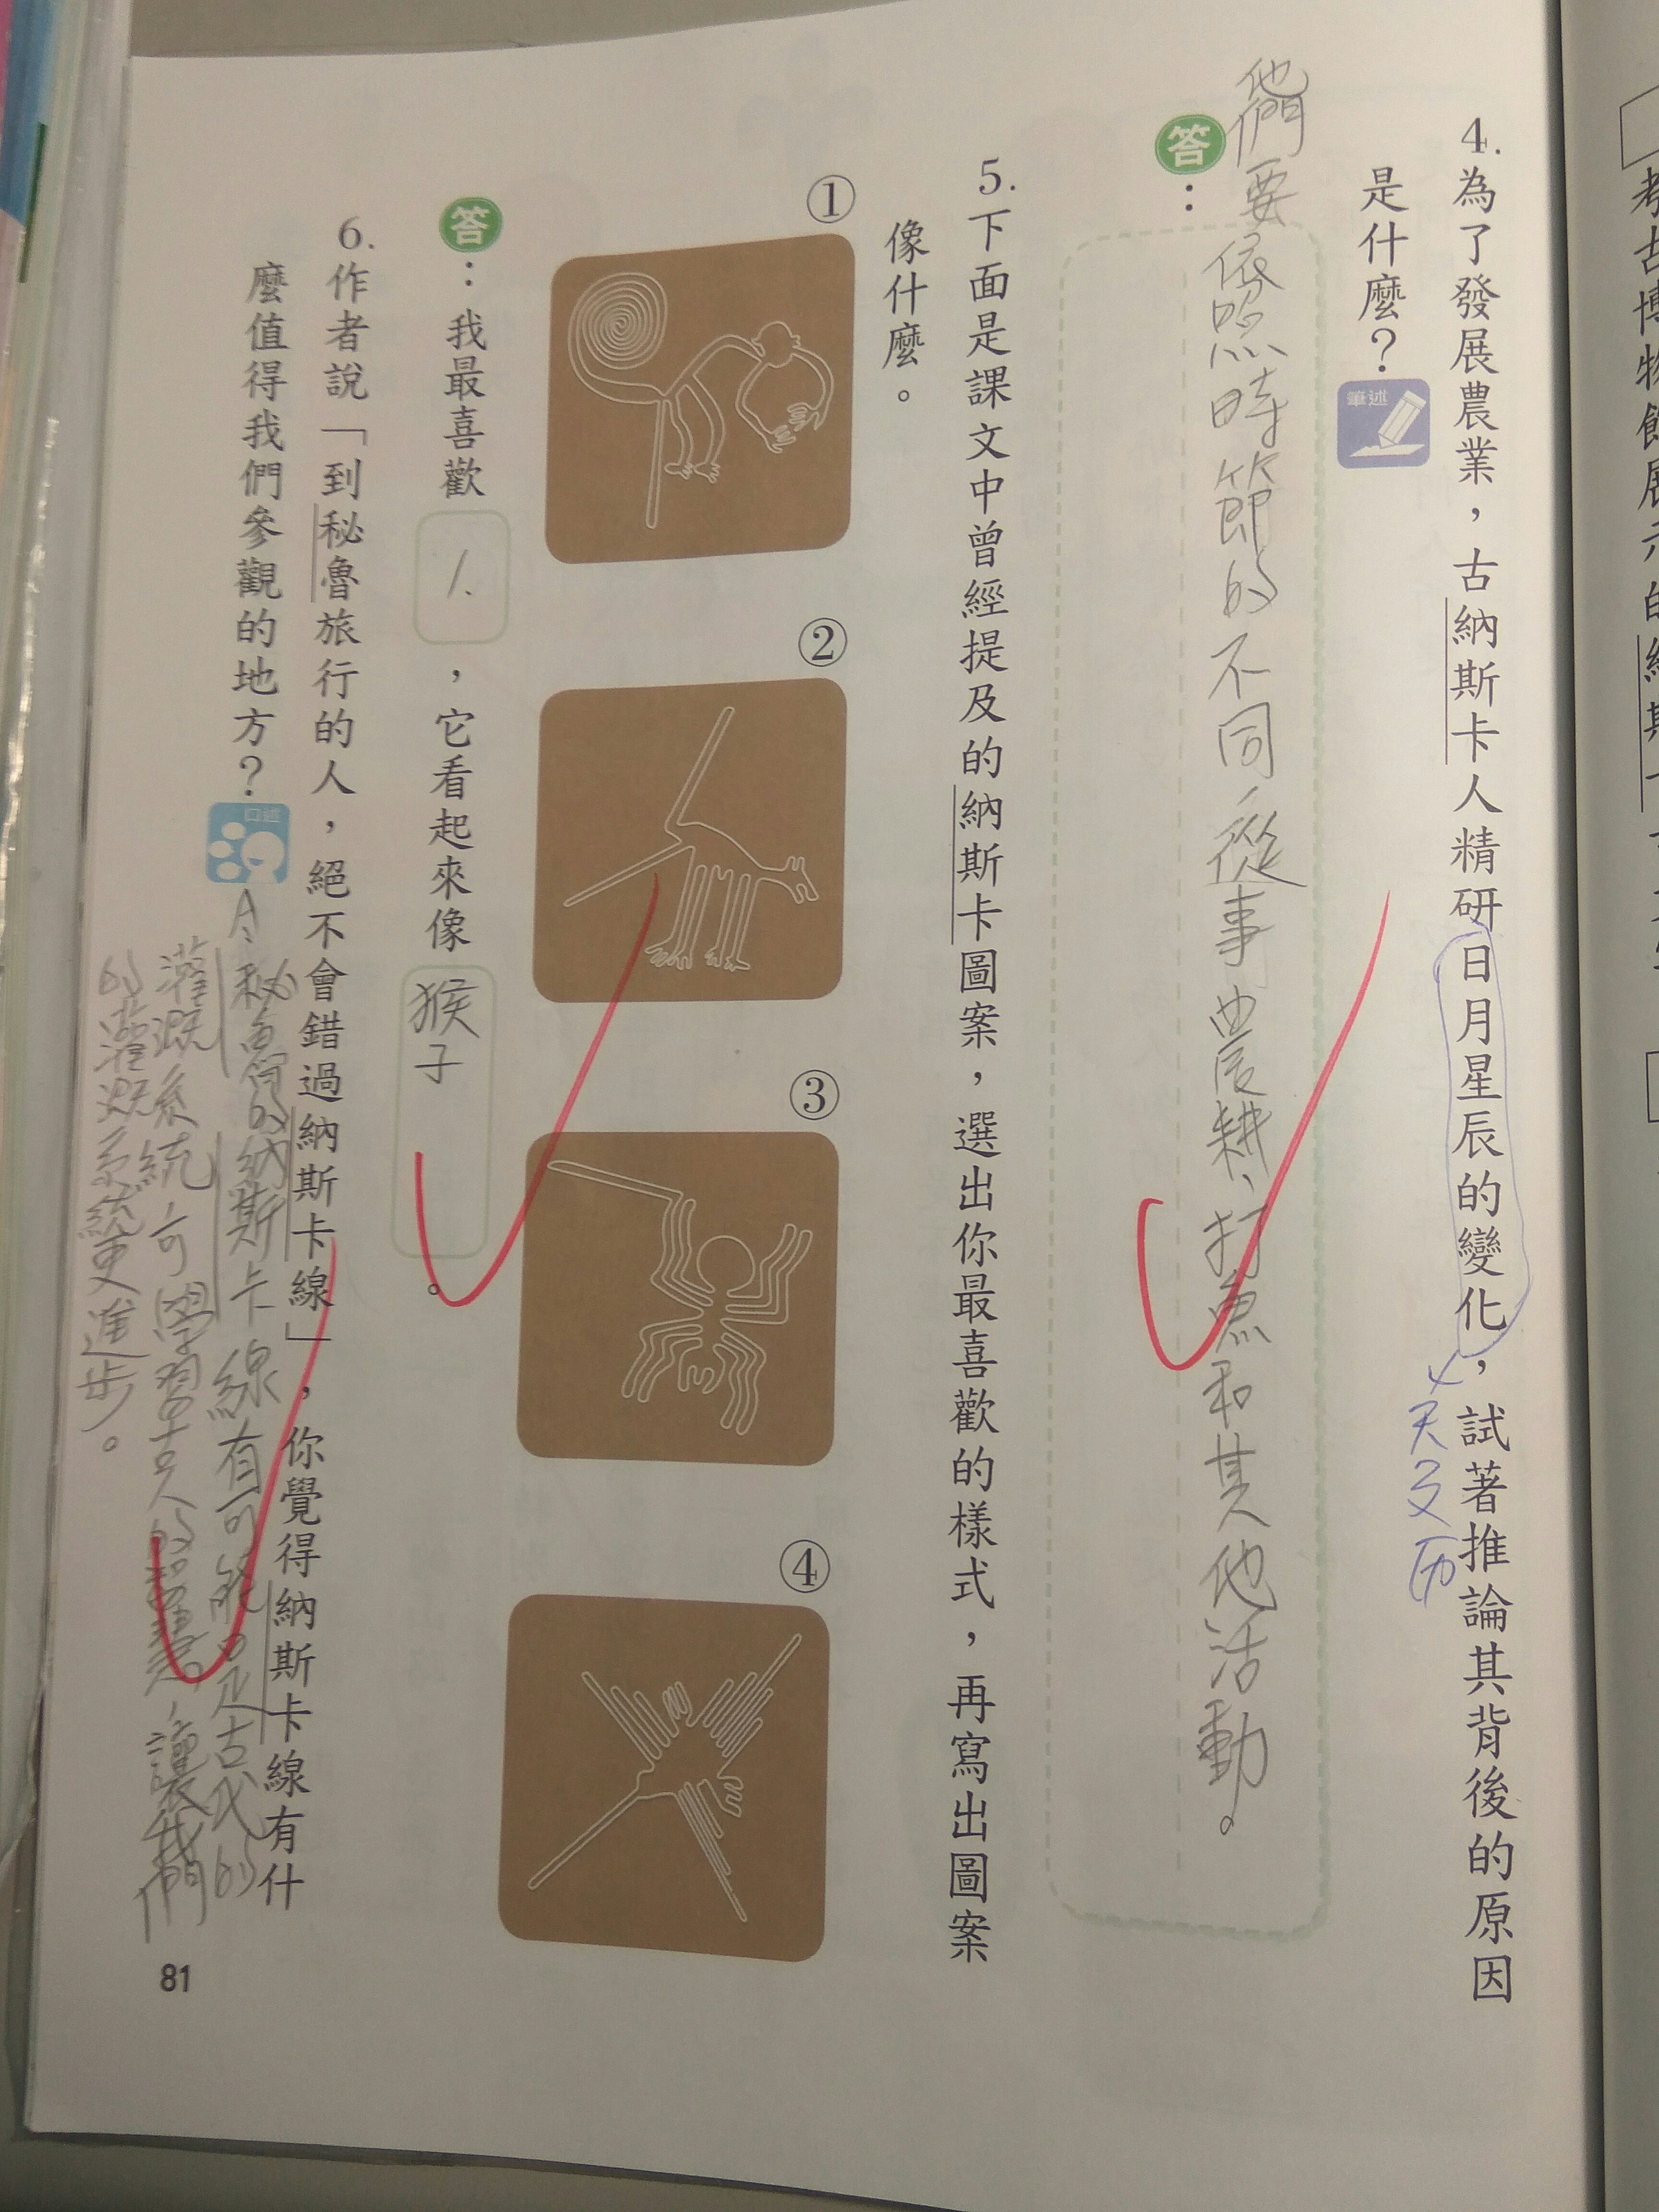 4.為了發展農業，古納斯卡人精研日月星辰的變化，試著推論其背後的原因
是什麼？
筆述
天文历
他們要依照時節的不同，從事農耕、打魚和其他活動。
答：
5.下面是課文中曾經提及的納斯卡圖案，選出你最喜歡的樣式，再寫出圖案
像什麼。
①
②
③
④
答：我最喜歡1.，它看起來像猴子。
6.作者說「到秘魯旅行的人，絕不會錯過納斯卡線」，你覺得納斯卡線有什
麼值得我們參觀的地方？
口述
A、秘魯的納斯卡線有可能是古代的
灌溉系統，可學習古人的智慧，讓我們
的灌溉系統更進步。
81